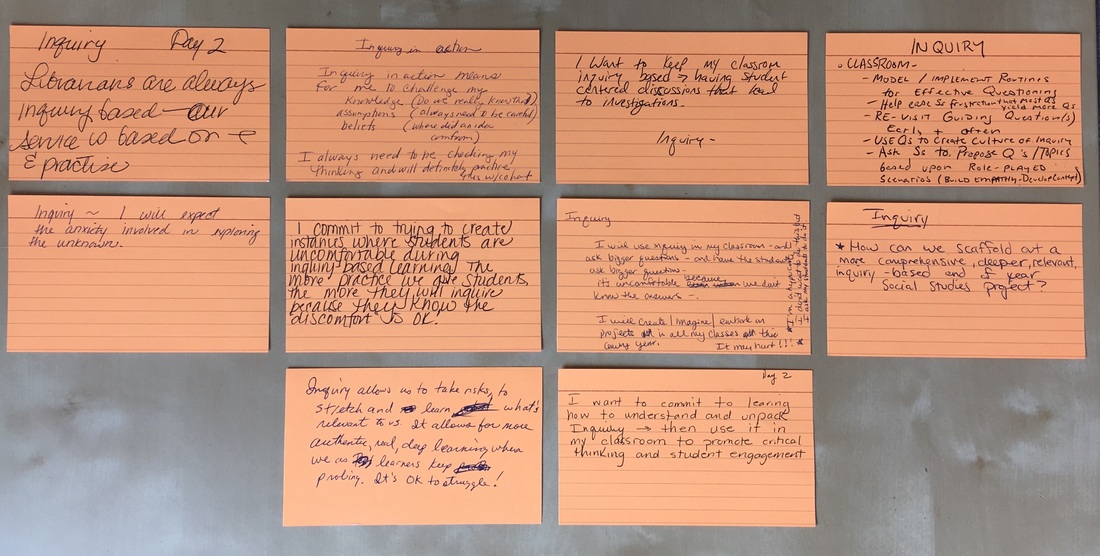 Inquiry Day 2
Librarians are always
Inquiry based - our
service is based on
& practise
Inquiry in action
Inquiry in action means
for me to challenge my
Knowledge (Do we really know this?)
assumptions (always need to be careful)
beliefs (where did an idea
come from)
I always need to be checking my
thinking and will definitely practice
this w/cohort
I want to keep my classroom
inquiry based → having student
centered discussions that lead
to investigations.
Inquiry -
INQUIRY
• CLASSROOM -
- MODEL / IMPLEMENT ROUTINES
for Effective Questioning
- Help ease Ss frustration that most Qs
yield more Qs
- RE-VISIT GUIDING QUESTION(S)
Early + often
- USE Qs to Create Culture of Inquiry
- ASK Ss to Propose Q's / TOPICS
based upon ROLE-PLAYED
Scenarios (BUILD EMPATHY-Develop Concept)
Inquiry ~ I will expect
the anxiety involved in exploring
the unknown.
I commit to trying to create
instances where students are
uncomfortable during
inquiry-based learning. The
more practice we give students,
the more they will inquire
because they know the
discomfort is OK.
Inquiry
I will use inquiry in my classroom - and
ask bigger questions - and have the students
ask bigger questions -
it's uncomfortable because we don't
know the answers -
I will create/imagine/embark on
projects in all my classes this
coming year. It may hurt!!!
* I'm a hypocrite if
I don't
I ask my students to do it *
Inquiry
* How can we scaffold out a
more comprehensive, deeper, relevant,
inquiry-based end of year
Social Studies project?
Inquiry allows us to take risks, to
stretch and learn what's
relevant to us. It allows for more
authentic, real, deep learning when
we as learners keep
probing. It's OK to struggle!
Day 2
I want to commit to learing
how to understand and unpack
Inquiry → then use it in
my classroom to promote critical
thinking and student engagement